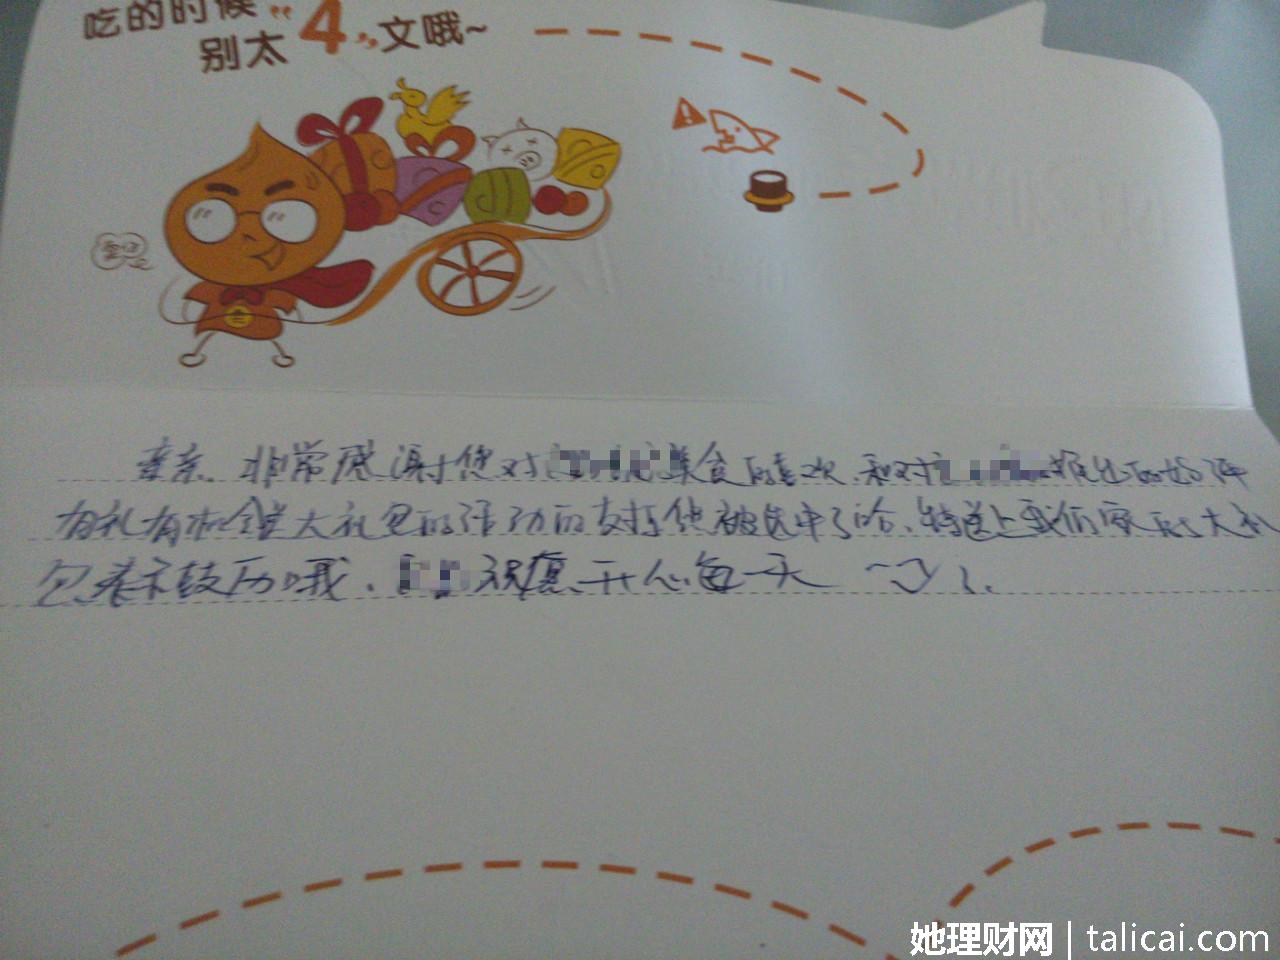 吃的时候“4”
别太 文哦~
亲亲、非常感谢您对美食的喜欢、和对推出的好评
有礼有机会送大礼包的活动的支持您被选中了哈、特送上我们家大礼
包表示鼓历哦、祝愿开心每一天
她理财网 | talicai.com